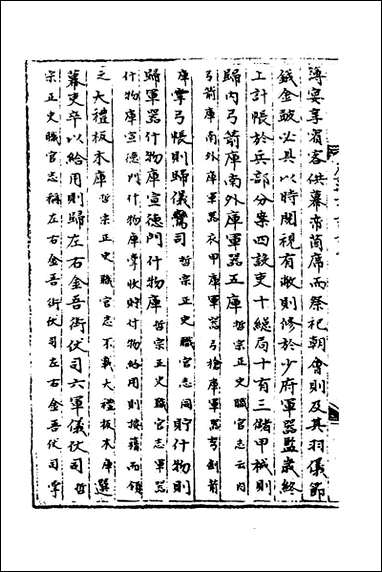 薄宴享賓客供幕帝茵席而祭祀朝會則及其羽儀節
鉞金鼓必具以時閱視有敝則修於少府軍器監歲終
上計帳於兵部分案四設吏十總局十有三儲甲械則
歸内弓箭庫南外庫軍器五庫哲宗正史職官志云内
弓箭庫南外庫軍器衣甲庫軍器弓槍庫軍器弩劍箭
庫掌弓帳則歸儀鸞司哲宗正史職官志同貯什物則
歸軍器什物庫宣德門什物庫哲宗正史職官志軍器
什物庫宣德門什物庫掌收貯什物給用則按籍而頒
之大禮板木庫哲宗正史職官志不載大禮板木庫選
募吏卒以給用則歸左右金吾街仗司六軍儀仗司哲
宗正史職官志稱左右金吾街仗司左右金吾仗司掌